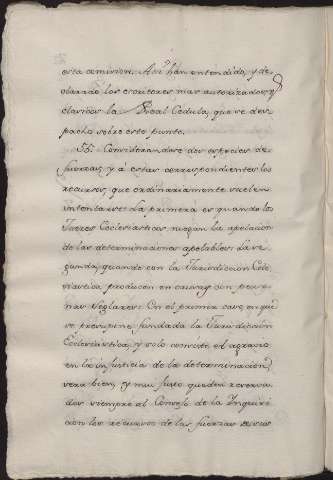 esta omision. Assi han entendido, y de-
clarado los escritores mas autorizados, y
clasicos la Real Cedula, que se des-
pachò sobre este punto.
55. Considerandose dos especies de
fuerzas, y à estas correspondientes los
recursos, que ordinariamente suelen
intentarse: La primera es quando los
Jueces Eclesiasticos niegan la apelacion
de las determinaciones apelables: La se-
gunda, quando con la Jurisdiccion Ecle-
siastica proceden en causas, con perso-
nas Seglares: En el primer caso, en que
se presupone fundada la Jurisdiccion
Eclesiastica, y solo consiste el agravio
en la injusticia de la determinacion,
sera bien, y muy justo queden reserva-
dos siempre al Consejo de la Inquisi-
cion los recursos de las fuerzas